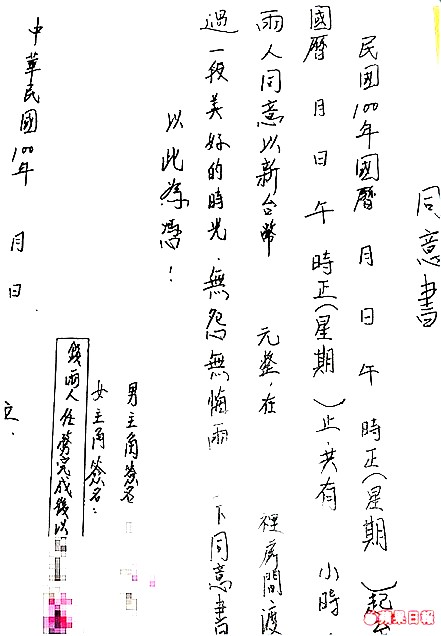 同意書
民國100年國曆 月 日 午 時正(星期 )起至
國曆 月 日 午 時正(星期 )止.共有 小時,
兩人同意以新台幣 元整,在 裡房間渡
過一段美好的時光.無怨無悔兩 下同意書
以此為憑!
男主角簽名
女主角簽名:
錢兩人任勞完成後以
中華民國100年 月 日
立.
蘋果日報